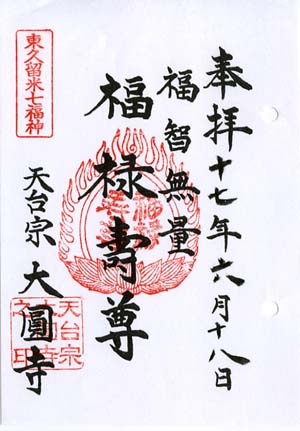 奉拝十七年六月十八日
福智無量
福禄壽尊
東久留米七福神
天台宗 大圓寺
天台宗